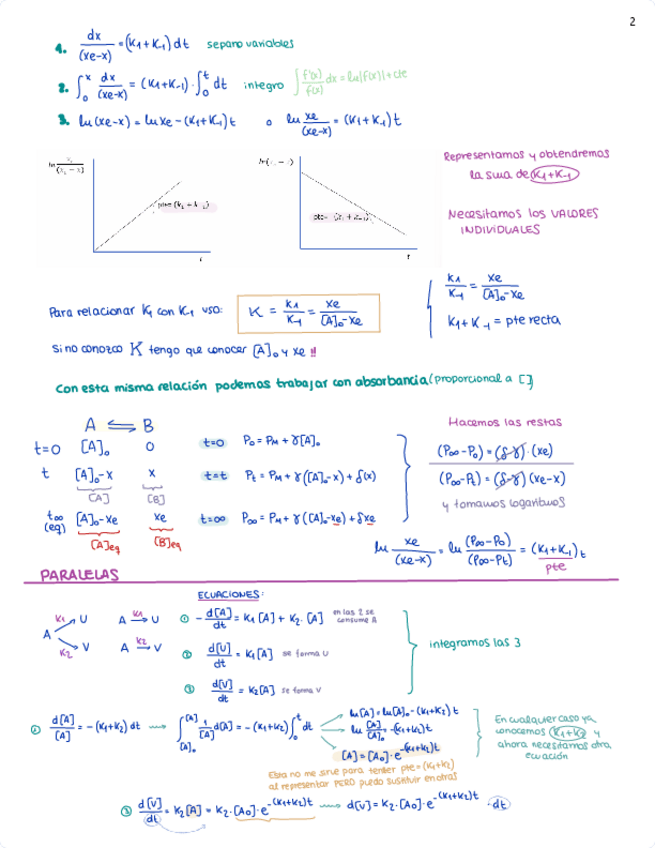 2
1. dx/(xe-x) = (K1+K-1) dt separo variables
2. ∫₀ˣ dx/(xe-x) = (K1+K-1)·∫₀ᵗ dt integro ∫ f'(x)/f(x) dx = ln|f(x)|+cte
3. ln(xe-x) = ln xe - (K1+K-1) t o ln xe/(xe-x) = (K1+K-1) t
Representamos y obtendremos
la suma de K1+K-1
Necesitamos los VALORES
INDIVIDUALES
t
t
Para relacionar K1 con K-1 uso: K = K1/K-1 = xe/([A]₀-xe)
K1/K-1 = xe/([A]₀-xe)
K1+K-1 = pte recta
Si no conozco K tengo que conocer [A]₀ y xe !!
Con esta misma relación podemos trabajar con absorbancia (proporcional a [])
A ⇌ B
t=0 [A]₀ 0 t=0 P₀ = PM + γ[A]₀
t [A]₀-x x t=t Pt = PM + γ([A]₀-x) + δ(x)
[A] [B]
t∞ (eq) [A]₀-xe xe t=∞ P∞ = PM + γ([A]₀-xe) + δxe
[A]eq [B]eq
Hacemos las restas
(P∞-P₀) = (δ-γ)·(xe)
(P∞-Pt) = (δ-γ)(xe-x)
y tomamos logaritmos
ln xe/(xe-x) = ln (P∞-P₀)/(P∞-Pt) = (K1+K-1) t
pte
PARALELAS
ECUACIONES:
K1 U A K1→ U ① -d[A]/dt = K1[A] + K2·[A] en las 2 se consume A
A
K2 V A K2→ V ② d[U]/dt = K1[A] se forma U
③ d[V]/dt = K2[A] se forma V
integramos las 3
② d[A]/[A] = -(K1+K2) dt → ∫[A]₀^[A] 1/[A] d[A] = -(K1+K2)∫₀ᵗ dt
ln[A] = ln[A]₀ - (K1+K2) t
ln [A]/[A]₀ = -(K1+K2) t
[A] = [A₀]·e^-(K1+K2)t
En cualquier caso ya
conocemos K1+K2 y
ahora necesitamos otra
ecuación
Esta no me sirve para tener pte=(K1+K2)
al representar PERO puedo sustituir en otras
③ d[V]/dt = K2[A] = K2·[A₀]·e^-(K1+K2)t → d[V] = K2·[A₀]·e^-(K1+K2)t · dt